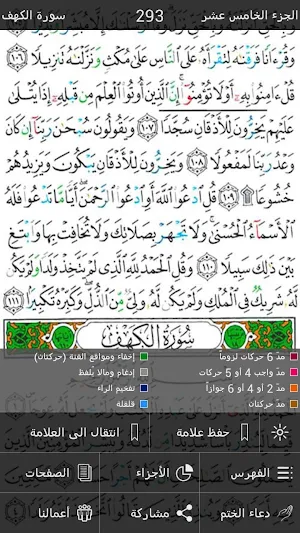 الجزء الخامس عشر 293 سورة الكهف
وَقُرْءَانًا فَرَقْنَٰهُ لِتَقْرَأَهُۥ عَلَى ٱلنَّاسِ عَلَىٰ مُكْثٍ وَنَزَّلْنَٰهُ تَنزِيلًا ١٠٦
قُلْ ءَامِنُوا۟ بِهِۦٓ أَوْ لَا تُؤْمِنُوٓا۟ إِنَّ ٱلَّذِينَ أُوتُوا۟ ٱلْعِلْمَ مِن قَبْلِهِۦٓ إِذَا يُتْلَىٰ
عَلَيْهِمْ يَخِرُّونَ لِلْأَذْقَانِ سُجَّدًا ١٠٧ وَيَقُولُونَ سُبْحَٰنَ رَبِّنَآ إِن كَانَ
وَعْدُ رَبِّنَا لَمَفْعُولًا ١٠٨ وَيَخِرُّونَ لِلْأَذْقَانِ يَبْكُونَ وَيَزِيدُهُمْ
خُشُوعًا ١٠٩ قُلِ ٱدْعُوا۟ ٱللَّهَ أَوِ ٱدْعُوا۟ ٱلرَّحْمَٰنَ أَيًّا مَّا تَدْعُوا۟ فَلَهُ
ٱلْأَسْمَآءُ ٱلْحُسْنَىٰ وَلَا تَجْهَرْ بِصَلَاتِكَ وَلَا تُخَافِتْ بِهَا وَٱبْتَغِ
بَيْنَ ذَٰلِكَ سَبِيلًا ١١٠ وَقُلِ ٱلْحَمْدُ لِلَّهِ ٱلَّذِى لَمْ يَتَّخِذْ وَلَدًا وَلَمْ يَكُن لَّهُۥ
شَرِيكٌ فِى ٱلْمُلْكِ وَلَمْ يَكُن لَّهُۥ وَلِىٌّ مِّنَ ٱلذُّلِّ وَكَبِّرْهُ تَكْبِيرًۢا ١١١
سُورَةُ الكَهْفِ
مدّ 6 حركات لزوماً إخفاء ومواقع الغنة (حركتان)
مدّ واجب 4 أو 5 حركات إدغام ومالا يُلفظ
مدّ 2 أو 4 او 6 جوازاً تفخيم الراء
مدّ حركتان قلقلة
حفظ علامة انتقال الى العلامة
الفهرس الأجزاء الصفحات
دعاء الختم مشاركة أعمالنا